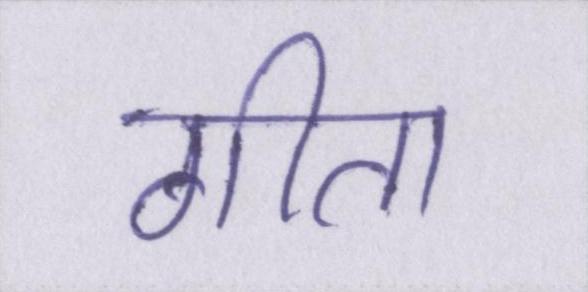 गीता